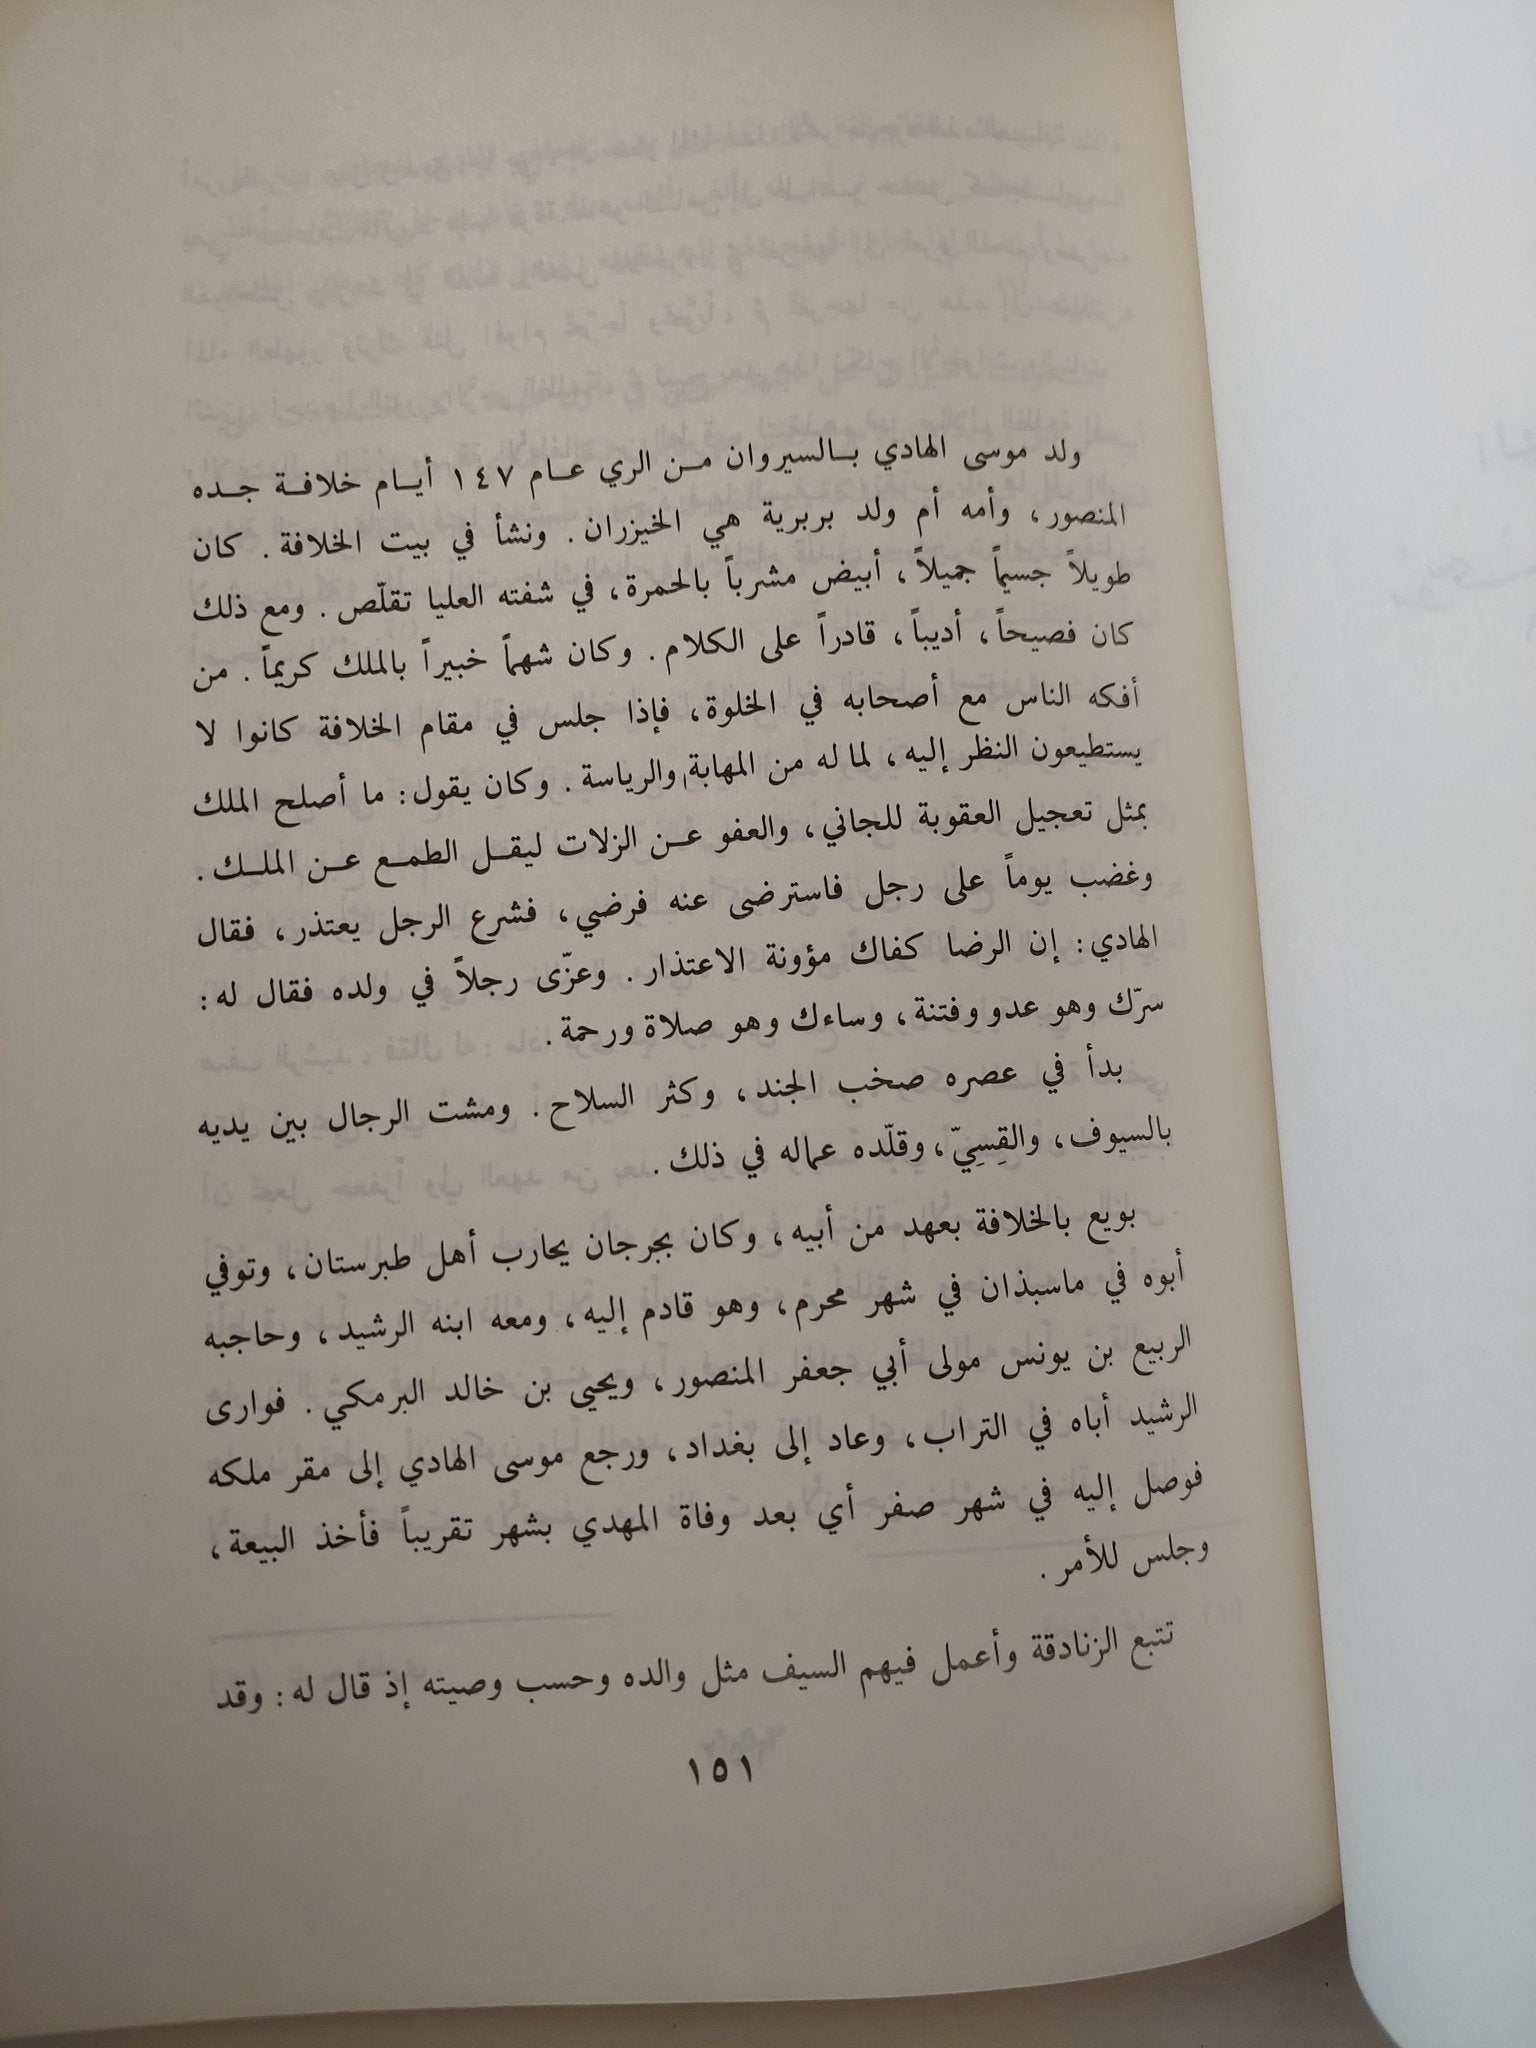 ولد موسى الهادي بـالسيروان مـن الري عـام ١٤٧ أيـام خلافـة جـده
المنصور، وأمه أم ولد بربرية هي الخيزران. ونشأ في بيت الخلافة. كان
طويلاً جسيماً جميلاً، أبيض مشرباً بالحمرة، في شفته العليا تقلّص. ومع ذلك
كان فصيحاً، أديباً، قادراً على الكلام. وكان شهماً خبيراً بالملك كريماً. من
أفكه الناس مع أصحابه في الخلوة، فإذا جلس في مقام الخلافة كانوا لا
يستطيعون النظر إليه، لما له من المهابة والرياسة. وكان يقول: ما أصلح الملك
بمثل تعجيل العقوبة للجاني، والعفو عـن الزلات ليقـل الطمـع عـن الملـك.
وغضب يوماً على رجل فاسترضى عنه فرضي، فشرع الرجل يعتذر، فقال
الهادي: إن الرضا كفاك مؤونة الاعتذار. وعزّى رجلاً في ولده فقال له:
سرّك وهو عدو وفتنة، وساءك وهو صلاة ورحمة.
بدأ في عصره صخب الجند، وكثر السلاح. ومشت الرجال بين يديه
بالسيوف، والقِسِيّ، وقلّده عماله في ذلك.
بويع بالخلافة بعهد من أبيه، وكان بجرجان يحارب أهل طبرستان، وتوفي
أبوه في ماسبذان في شهر محرم، وهو قادم إليه، ومعه ابنه الرشيد، وحاجبه
الربيع بن يونس مولى أبي جعفر المنصور، ويحيى بن خالد البرمكي. فوارى
الرشيد أباه في التراب، وعاد إلى بغداد، ورجع موسى الهادي إلى مقر ملكه
فوصل إليه في شهر صفر أي بعد وفاة المهدي بشهر تقريباً فأخذ البيعة،
وجلس للأمر.
تتبع الزنادقة وأعمل فيهم السيف مثل والده وحسب وصيته إذ قال له: وقد
١٥١